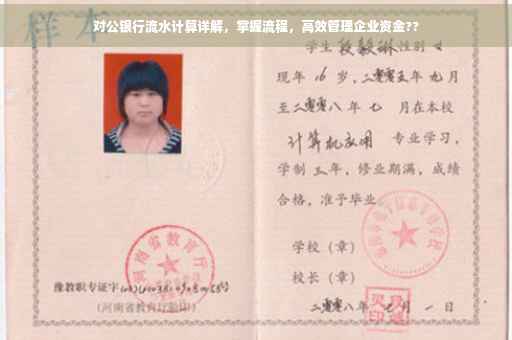 样本
对公银行流水计算详解，掌握流程，高效管理企业资金??
学生 段毅琳 性别 女
现年 16 岁，二零零五年 九月
至二零零八年 七 月在本校
计算机应用 专业学习，
学制 三年，修业期满，成绩
合格，准予毕业
学校（章）
校长（章）
河南省教育厅
豫教职专证字
(河南省教育厅验印)
二零零八年 七 月 一 日